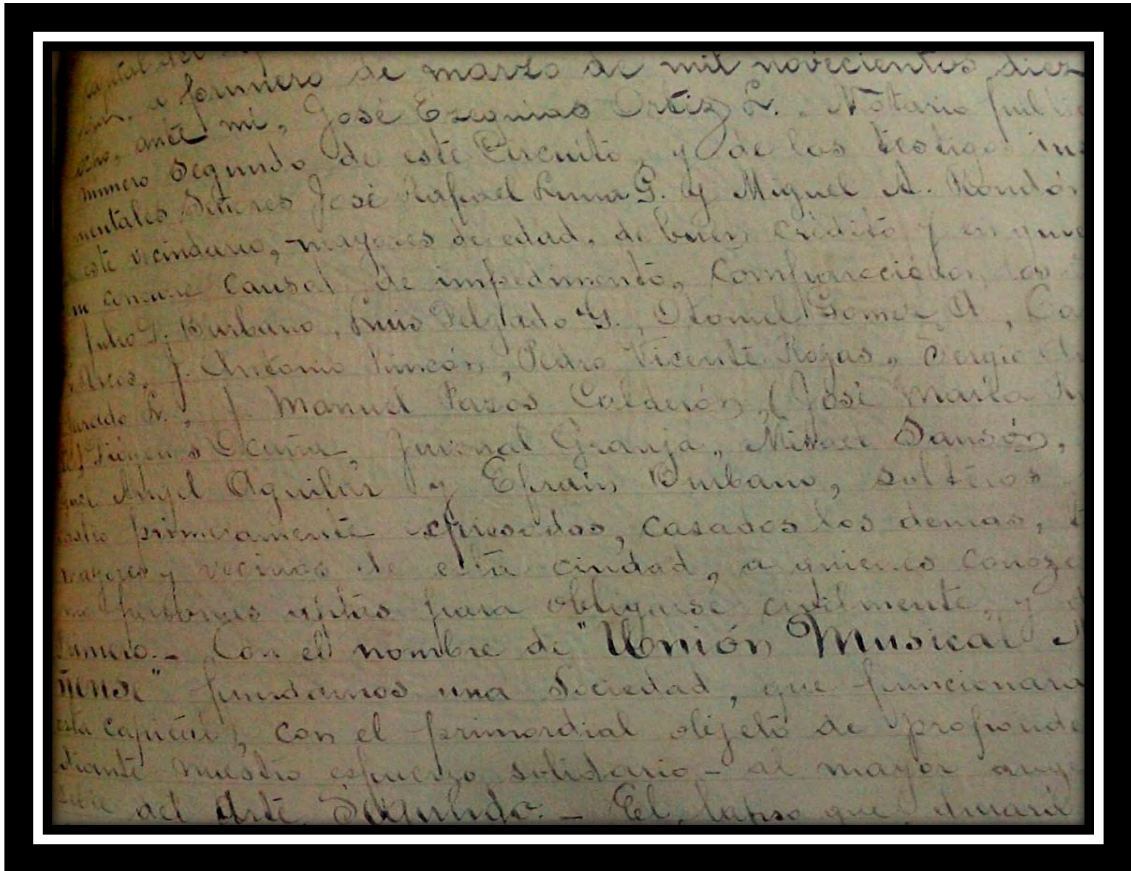 capital del
a primero de marzo de mil novecientos diez
ocho, ante mi, José Ezequias Ortiz L. Notario públi
número segundo de este Circuito, y de los testigos ins
mentales Señores José Rafael Luna G. y Miguel A. Rondón
este vecindario, mayores de edad, de buen crédito y en quie
causal de impedimento, comparecieron los
Julio Burbano, Luis Delgado G., Otoniel Gomez A, Ca
J. Antonio Rincón, Pedro Vicente Rojas, Sergio
L., J. Manuel Pazos Calderón, José María
Acuña, Juvenal Granja, Misael Sansón,
Angel Aguilar y Efrain Burbano, solteros
primeramente expresados, casados los demas,
mayores y vecinos de esta ciudad, a quienes conozc
personas aptas para obligarse civilmente, y
Primero.- Con el nombre de "Unión Musical
ñense" fundamos una Sociedad, que funcionará
esta capital, con el primordial objeto de propende
diante nuestro esfuerzo solidario - al mayor
del Arte. Segundo.- El lapso que durará